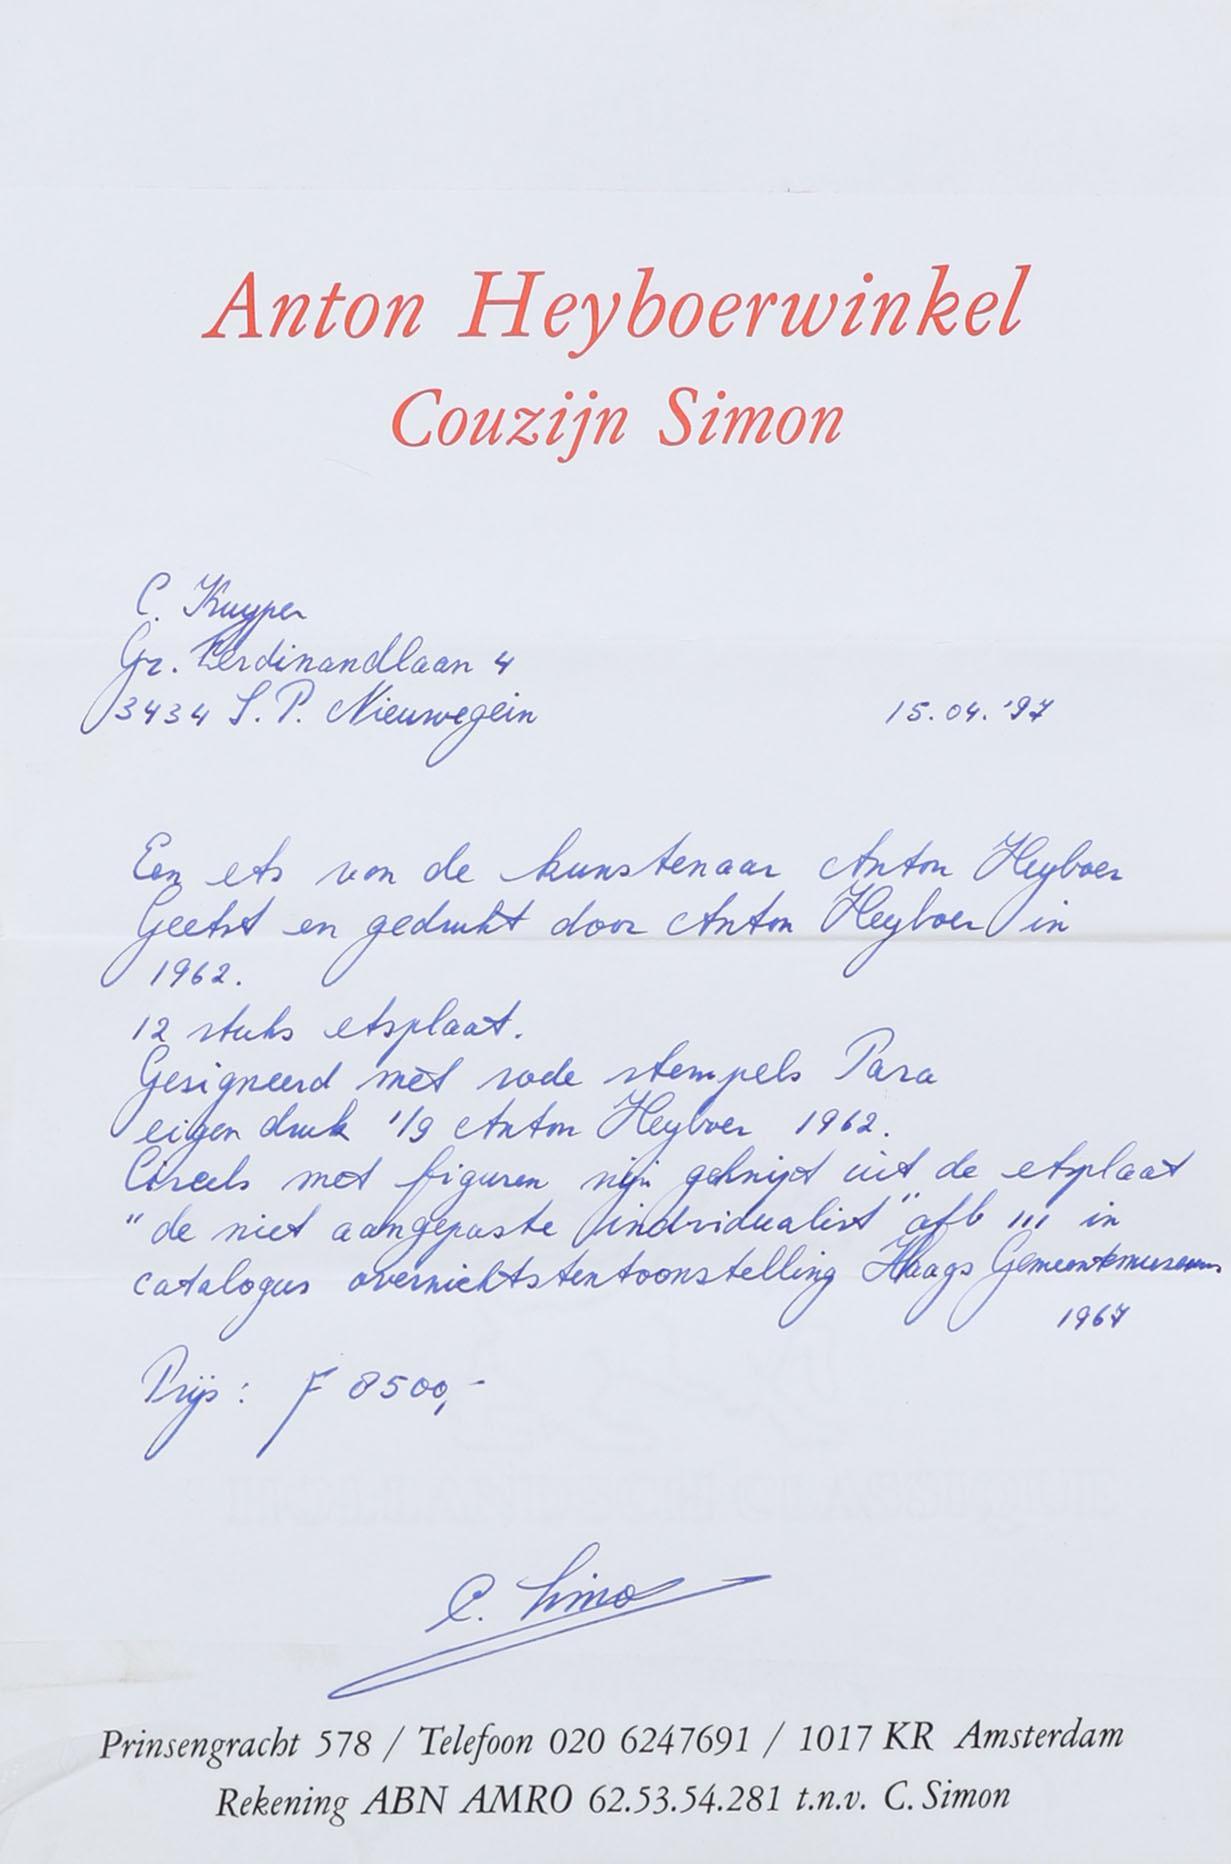 Anton Heyboerwinkel
Couzijn Simon
C. Kuyper
Gr. Ferdinandlaan 4
3434 S.P. Nieuwegein
15.04.'97
Een ets van de kunstenaar Anton Heyboer
Geetst en gedrukt door Anton Heyboer in
1962.
12 stuks etsplaat.
Gesigneerd met rode stempels Para
eigen druk 1/9 Anton Heyboer 1962.
Circels met figuren zijn geknipt uit de etsplaat
"de niet aangepaste individualist" afb 111 in
catalogus overzichtstentoonstelling Haags Gemeentemuseum
1967
Prijs: F 8500,-
C. Simo
Prinsengracht 578 / Telefoon 020 6247691 / 1017 KR Amsterdam
Rekening ABN AMRO 62.53.54.281 t.n.v. C. Simon